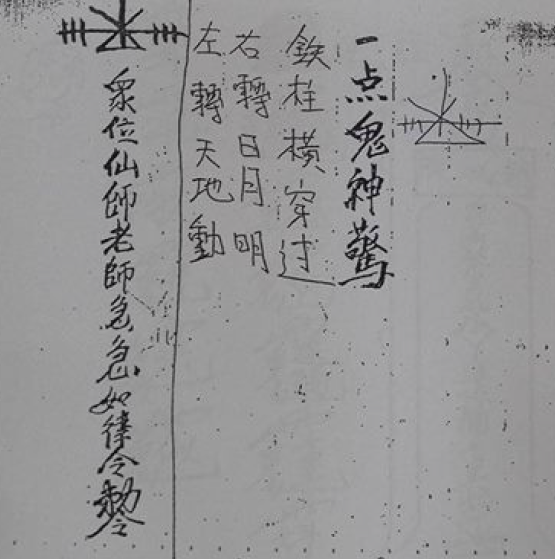 一点鬼神驚
鉄柱横穿过
右轉日月明
左轉天地動
衆位仙師老師急急如律令勅令